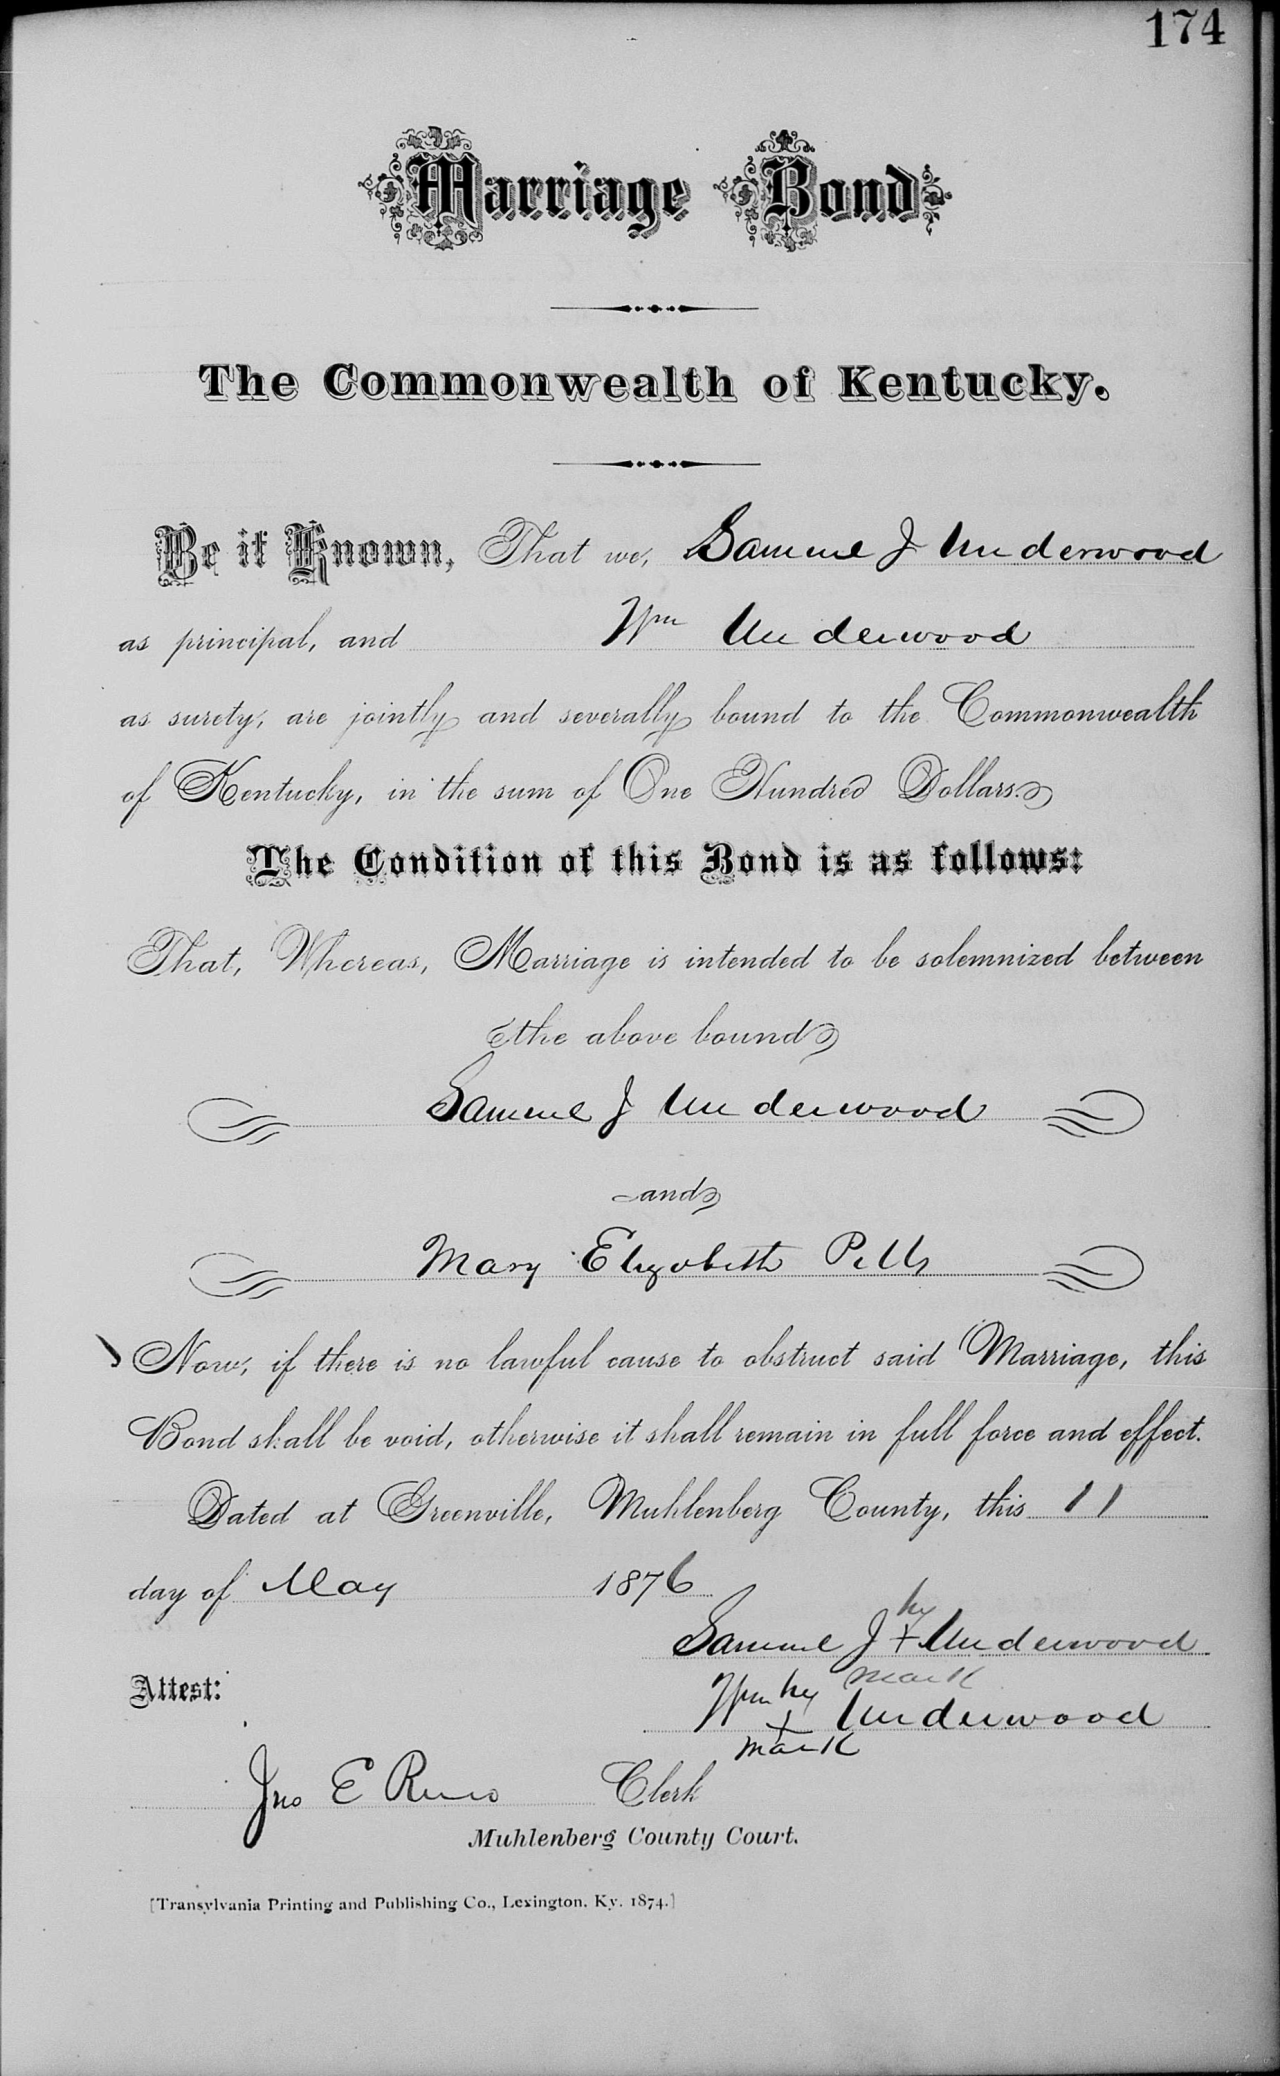 174
Marriage Bond
The Commonwealth of Kentucky.
Be it Known, That we, Samuel J Underwood
as principal, and Wm Underwood
as surety, are jointly and severally bound to the Commonwealth
of Kentucky, in the sum of One Hundred Dollars.
The Condition of this Bond is as follows:
That, Whereas, Marriage is intended to be solemnized between
the above bound
Samuel J Underwood
and
Mary Elizabeth
Now, if there is no lawful cause to obstruct said Marriage, this
Bond shall be void, otherwise it shall remain in full force and effect.
Dated at Greenville, Muhlenberg County, this 11
day of May 1876
his
Samuel J + Underwood
mark
Attest:
Wm his Underwood
+
mark
Jno E Reno Clerk
Muhlenberg County Court.
[Transylvania Printing and Publishing Co., Lexington, Ky. 1874.]